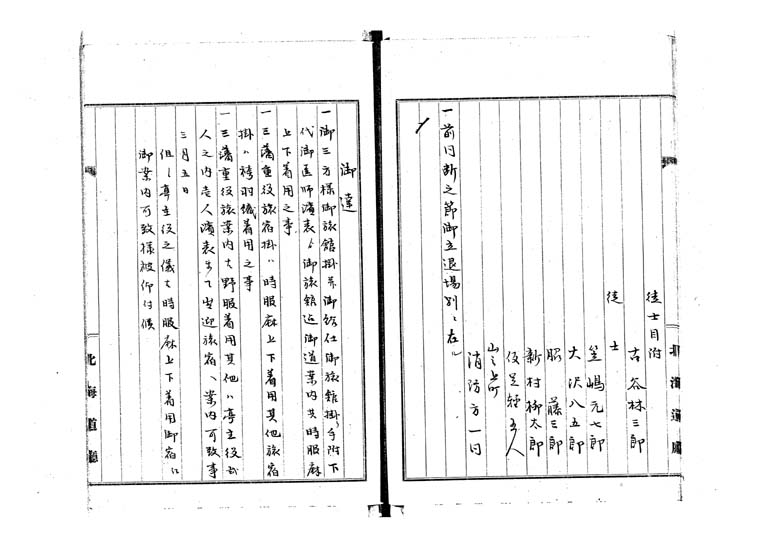 徒士目附
古谷林三郎
徒士
笠嶋元七郎
大沢八五郎
藤三郎
新村柳太郎
役足軽五人
山之上町
消防方一同
一前同断之節御立退場別ニ在
御達
一御三方様御旅館掛并御給仕御旅館掛り手附下
代御医師濱表ゟ御旅館迄御道案内共時服麻
上下着用之事
一三藩重役旅宿掛ハ時服麻上下着用其他旅宿
掛ハ袴羽織着用之事
一三藩重役旅案内ハ野服着用其他ハ亭主役
人之内壱人濱表迄出迎旅宿へ案内可致事
三月五日
但シ亭主役之儀ハ時服麻上下着用御宿に
御案内可致様被仰付候
北海道廳
北海道廳